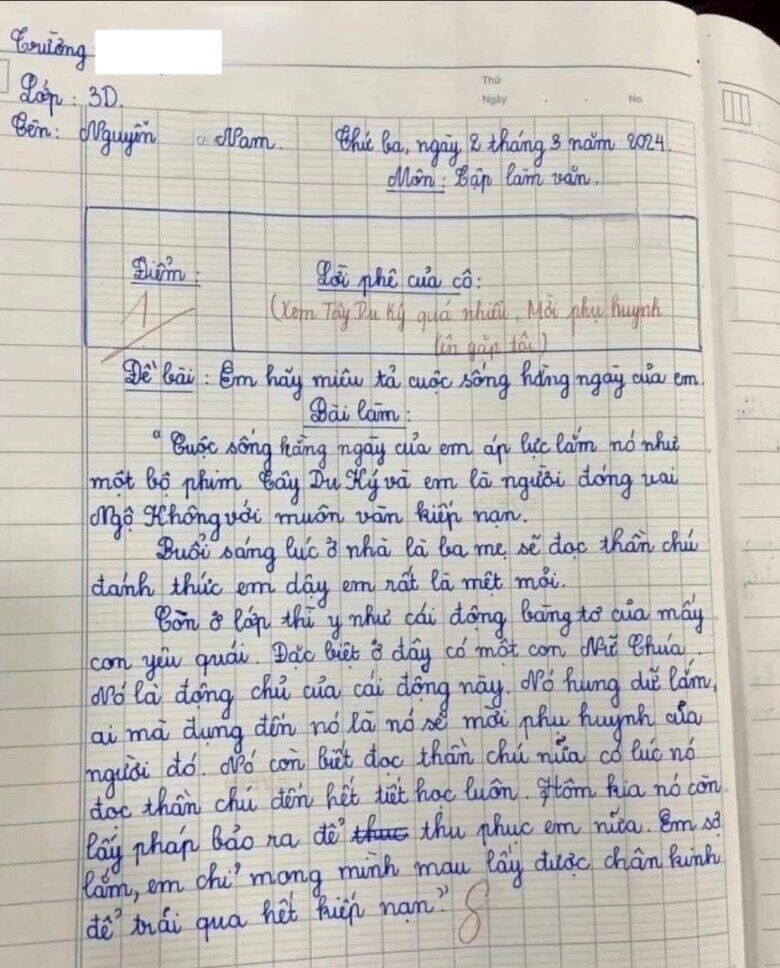 Trường
Thứ
Ngày . . No.
Lớp : 3D.
Tên : Nguyễn Nam. Thứ ba, ngày 2 tháng 3 năm 2024.
Môn : Tập làm văn.
Điểm : Lời phê của cô :
1 (Xem Tây Du Ký quá nhiều, Mời phụ huynh
lên gặp tôi)
Đề bài : Em hãy miêu tả cuộc sống hằng ngày của em.
Bài làm :
"Cuộc sống hằng ngày của em áp lực lắm nó như
một bộ phim Tây Du Ký và em là người đóng vai
Ngộ Không với muôn vàn kiếp nạn.
Buổi sáng lúc ở nhà là ba mẹ sẽ đọc thần chú
đánh thức em dậy em rất là mệt mỏi.
Còn ở lớp thì y như cái động bàng tơ của mấy
con yêu quái. Đặc biệt ở đây có một con Nữ Chúa.
Nó là động chủ của cái động này. Nó hung dữ lắm,
ai mà đụng đến nó là nó sẽ mời phụ huynh của
người đó. Nó còn biết đọc thần chú nữa có lúc nó
đọc thần chú đến hết tiết học luôn. Hôm kia nó còn
lấy pháp bảo ra để thuc thu phục em nữa. Em sợ
lắm, em chỉ mong mình mau lấy được chân kinh
để trải qua hết kiếp nạn."